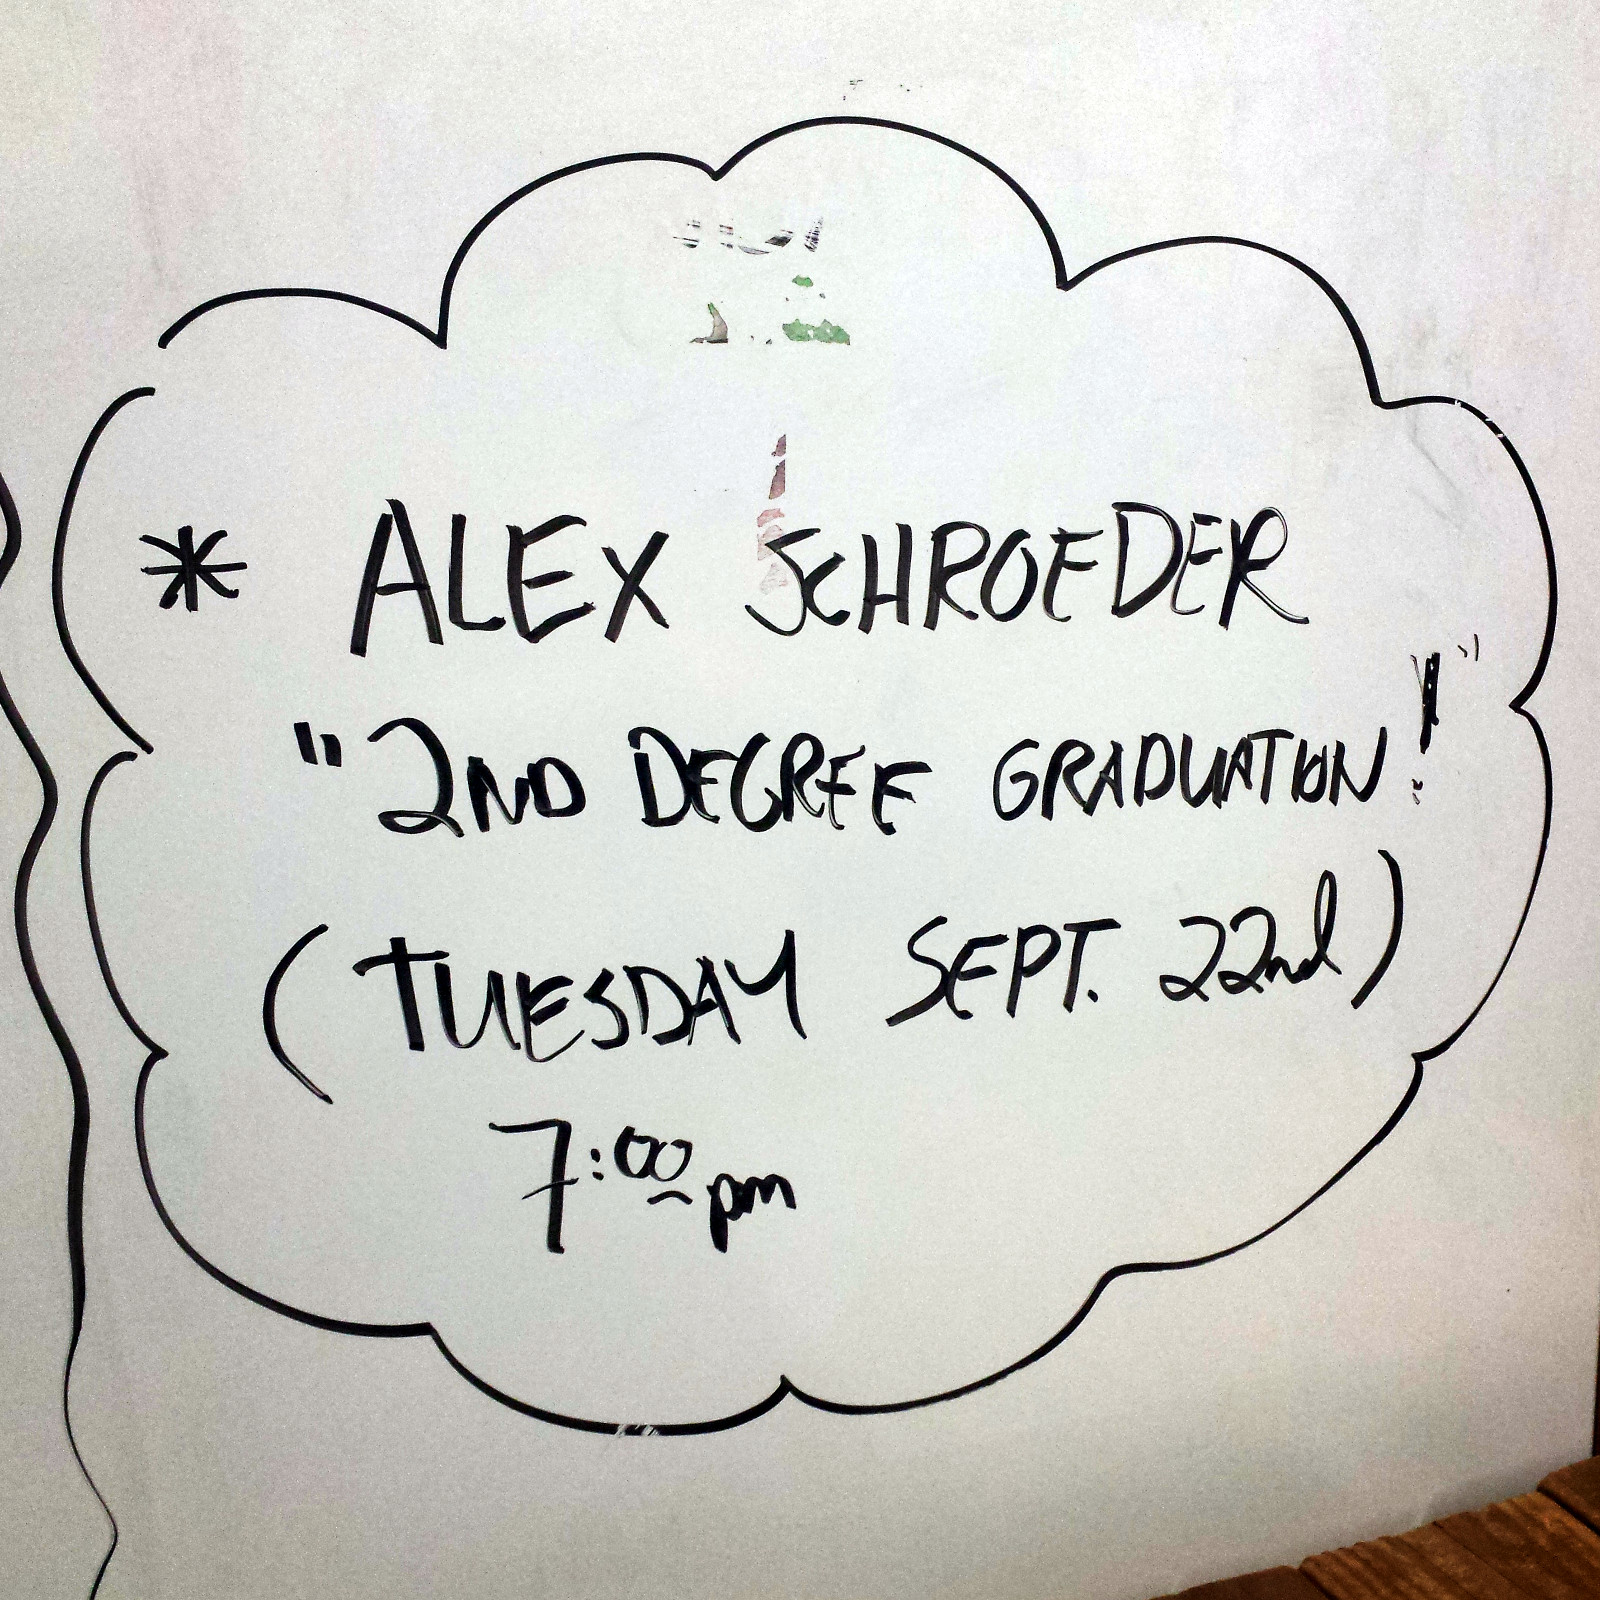 * ALEX SCHROEDER
"2ND DEGREE GRADUATION!"
(TUESDAY SEPT. 22nd)
7:00 pm